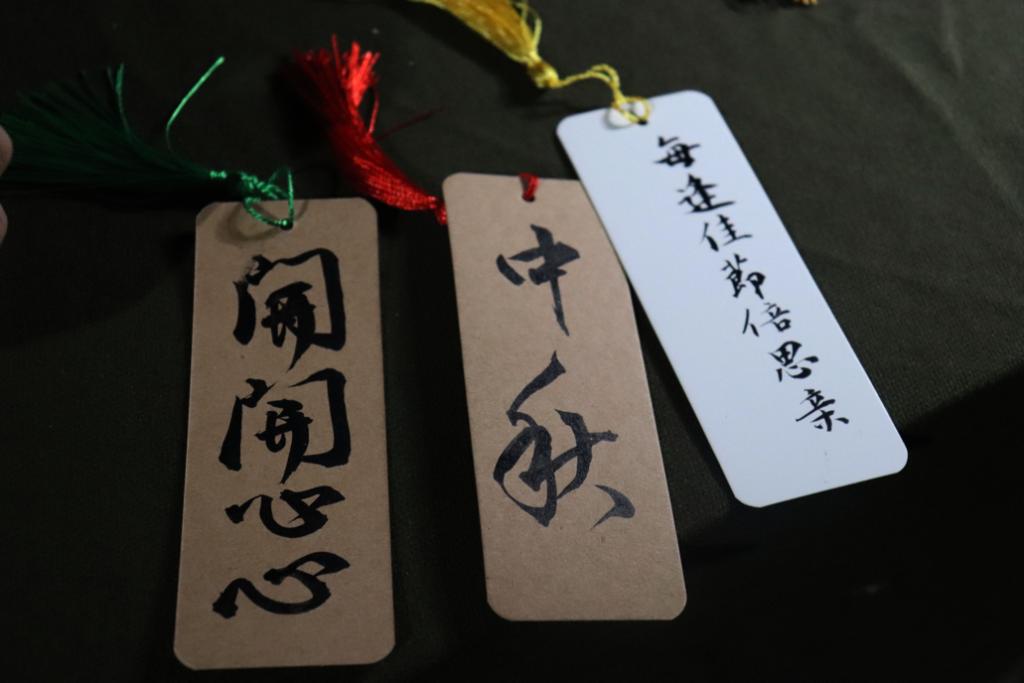 開開心心
中秋
每逢佳節倍思亲